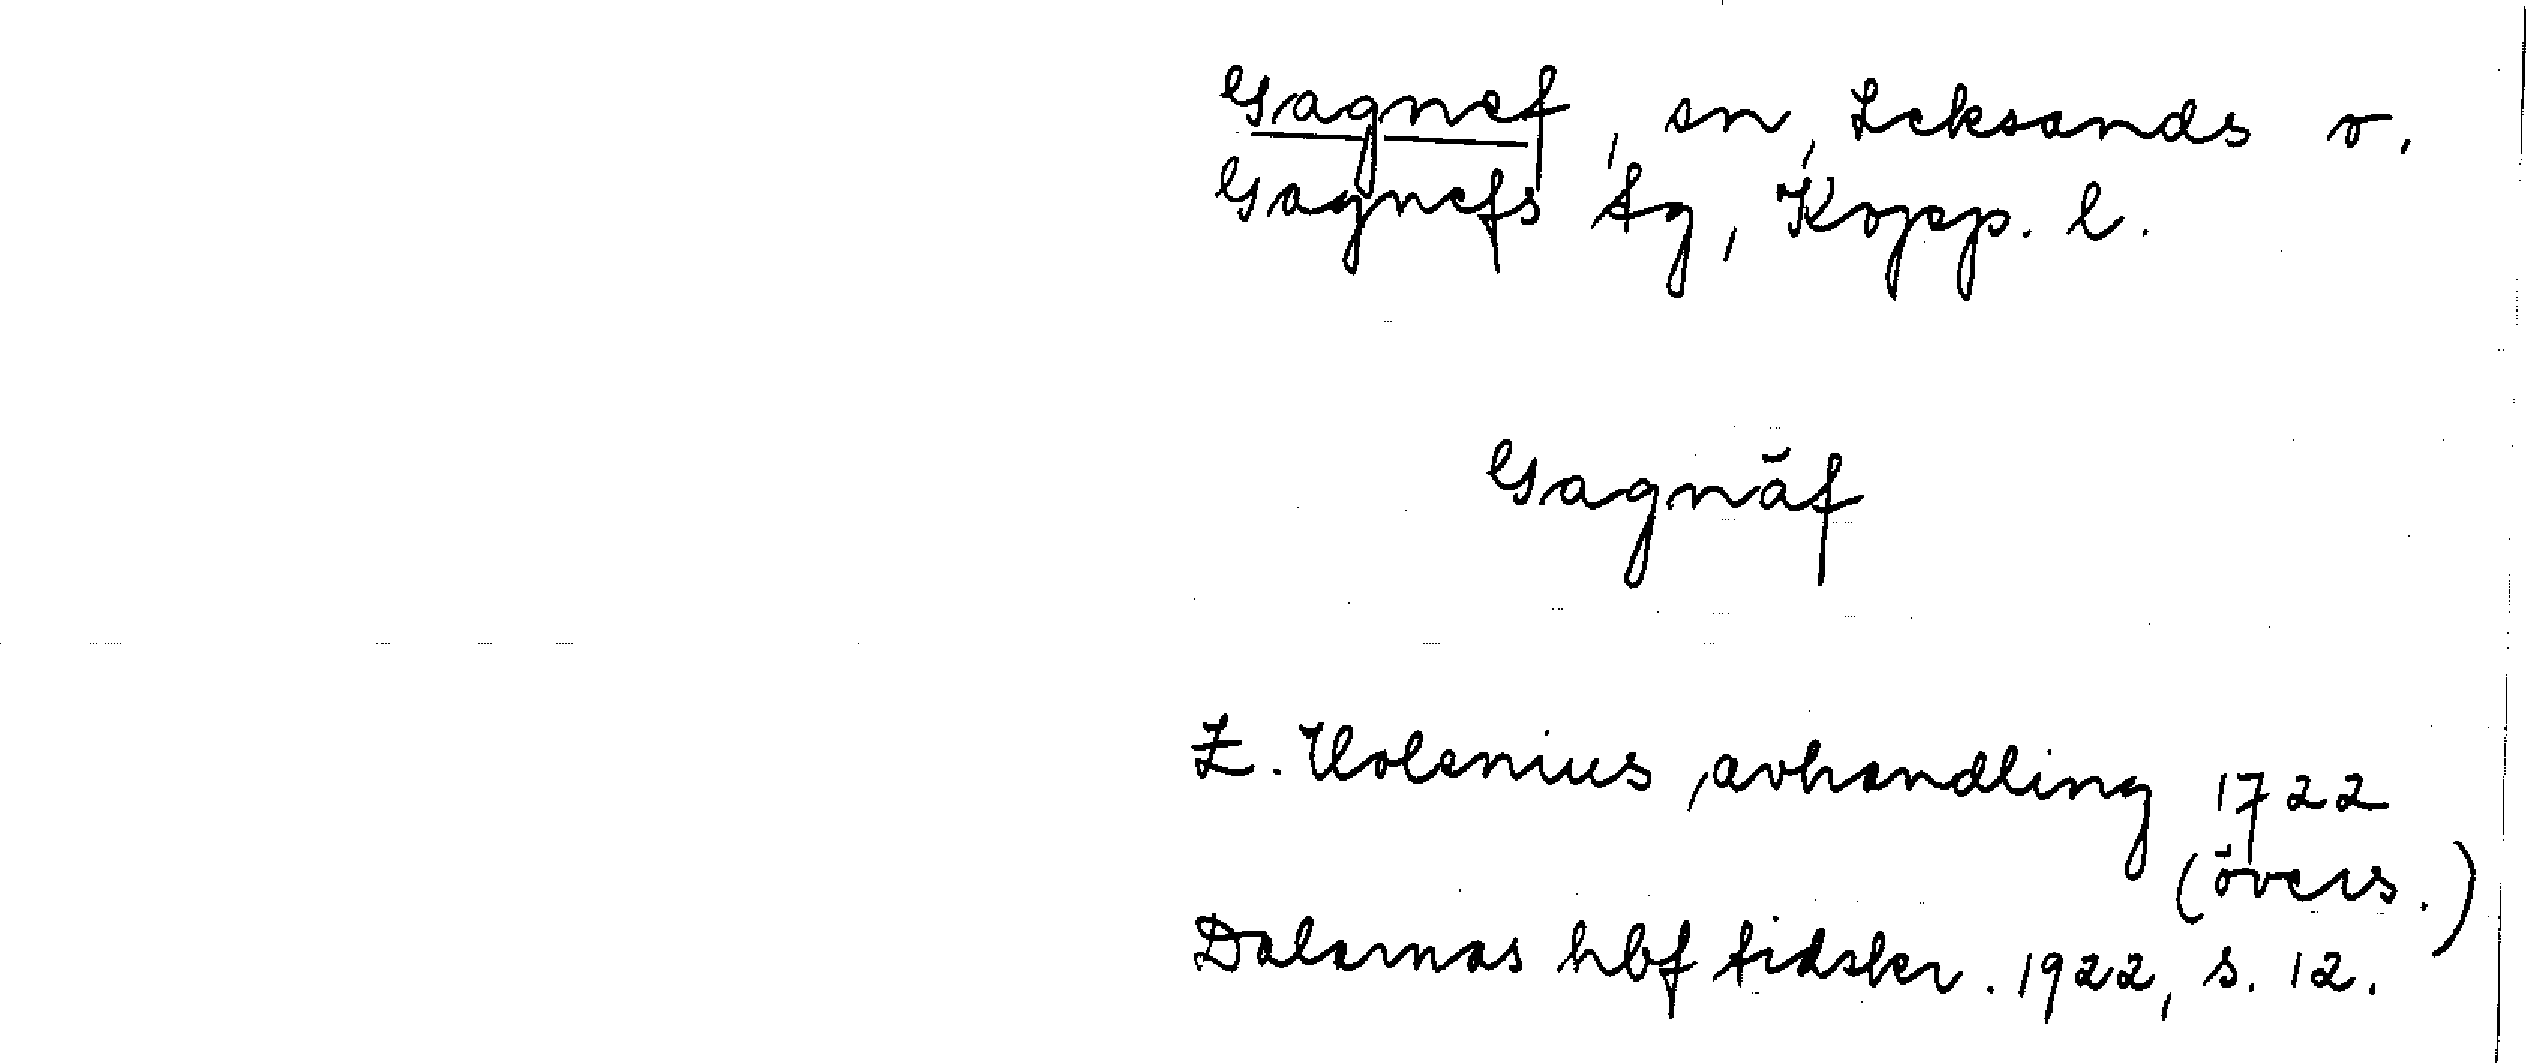 Gagnef, sn, Leksands o.
Gagnefs tg, Kopp. l.
Gagnäf
Z. Holenius, avhandling 1722
(övers.)
Dalarnas hbf tidskr. 1922, s. 12.